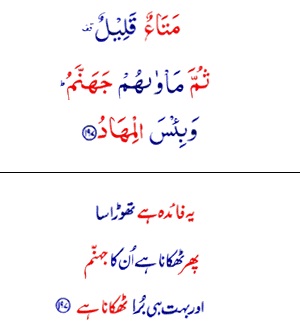 مَتَاعٌ قَلِيْلٌ قف
ثُمَّ مَاْوٰىهُمْ جَهَنَّمُ ؕ
وَبِئْسَ الْمِهَادُ ۝۱۹۷
یہ فائدہ ہے تھوڑا سا
پھر ٹھکانا ہے اُن کا جہنّم
اور بہت ہی بُرا ٹھکانا ہے ۝۱۹۷